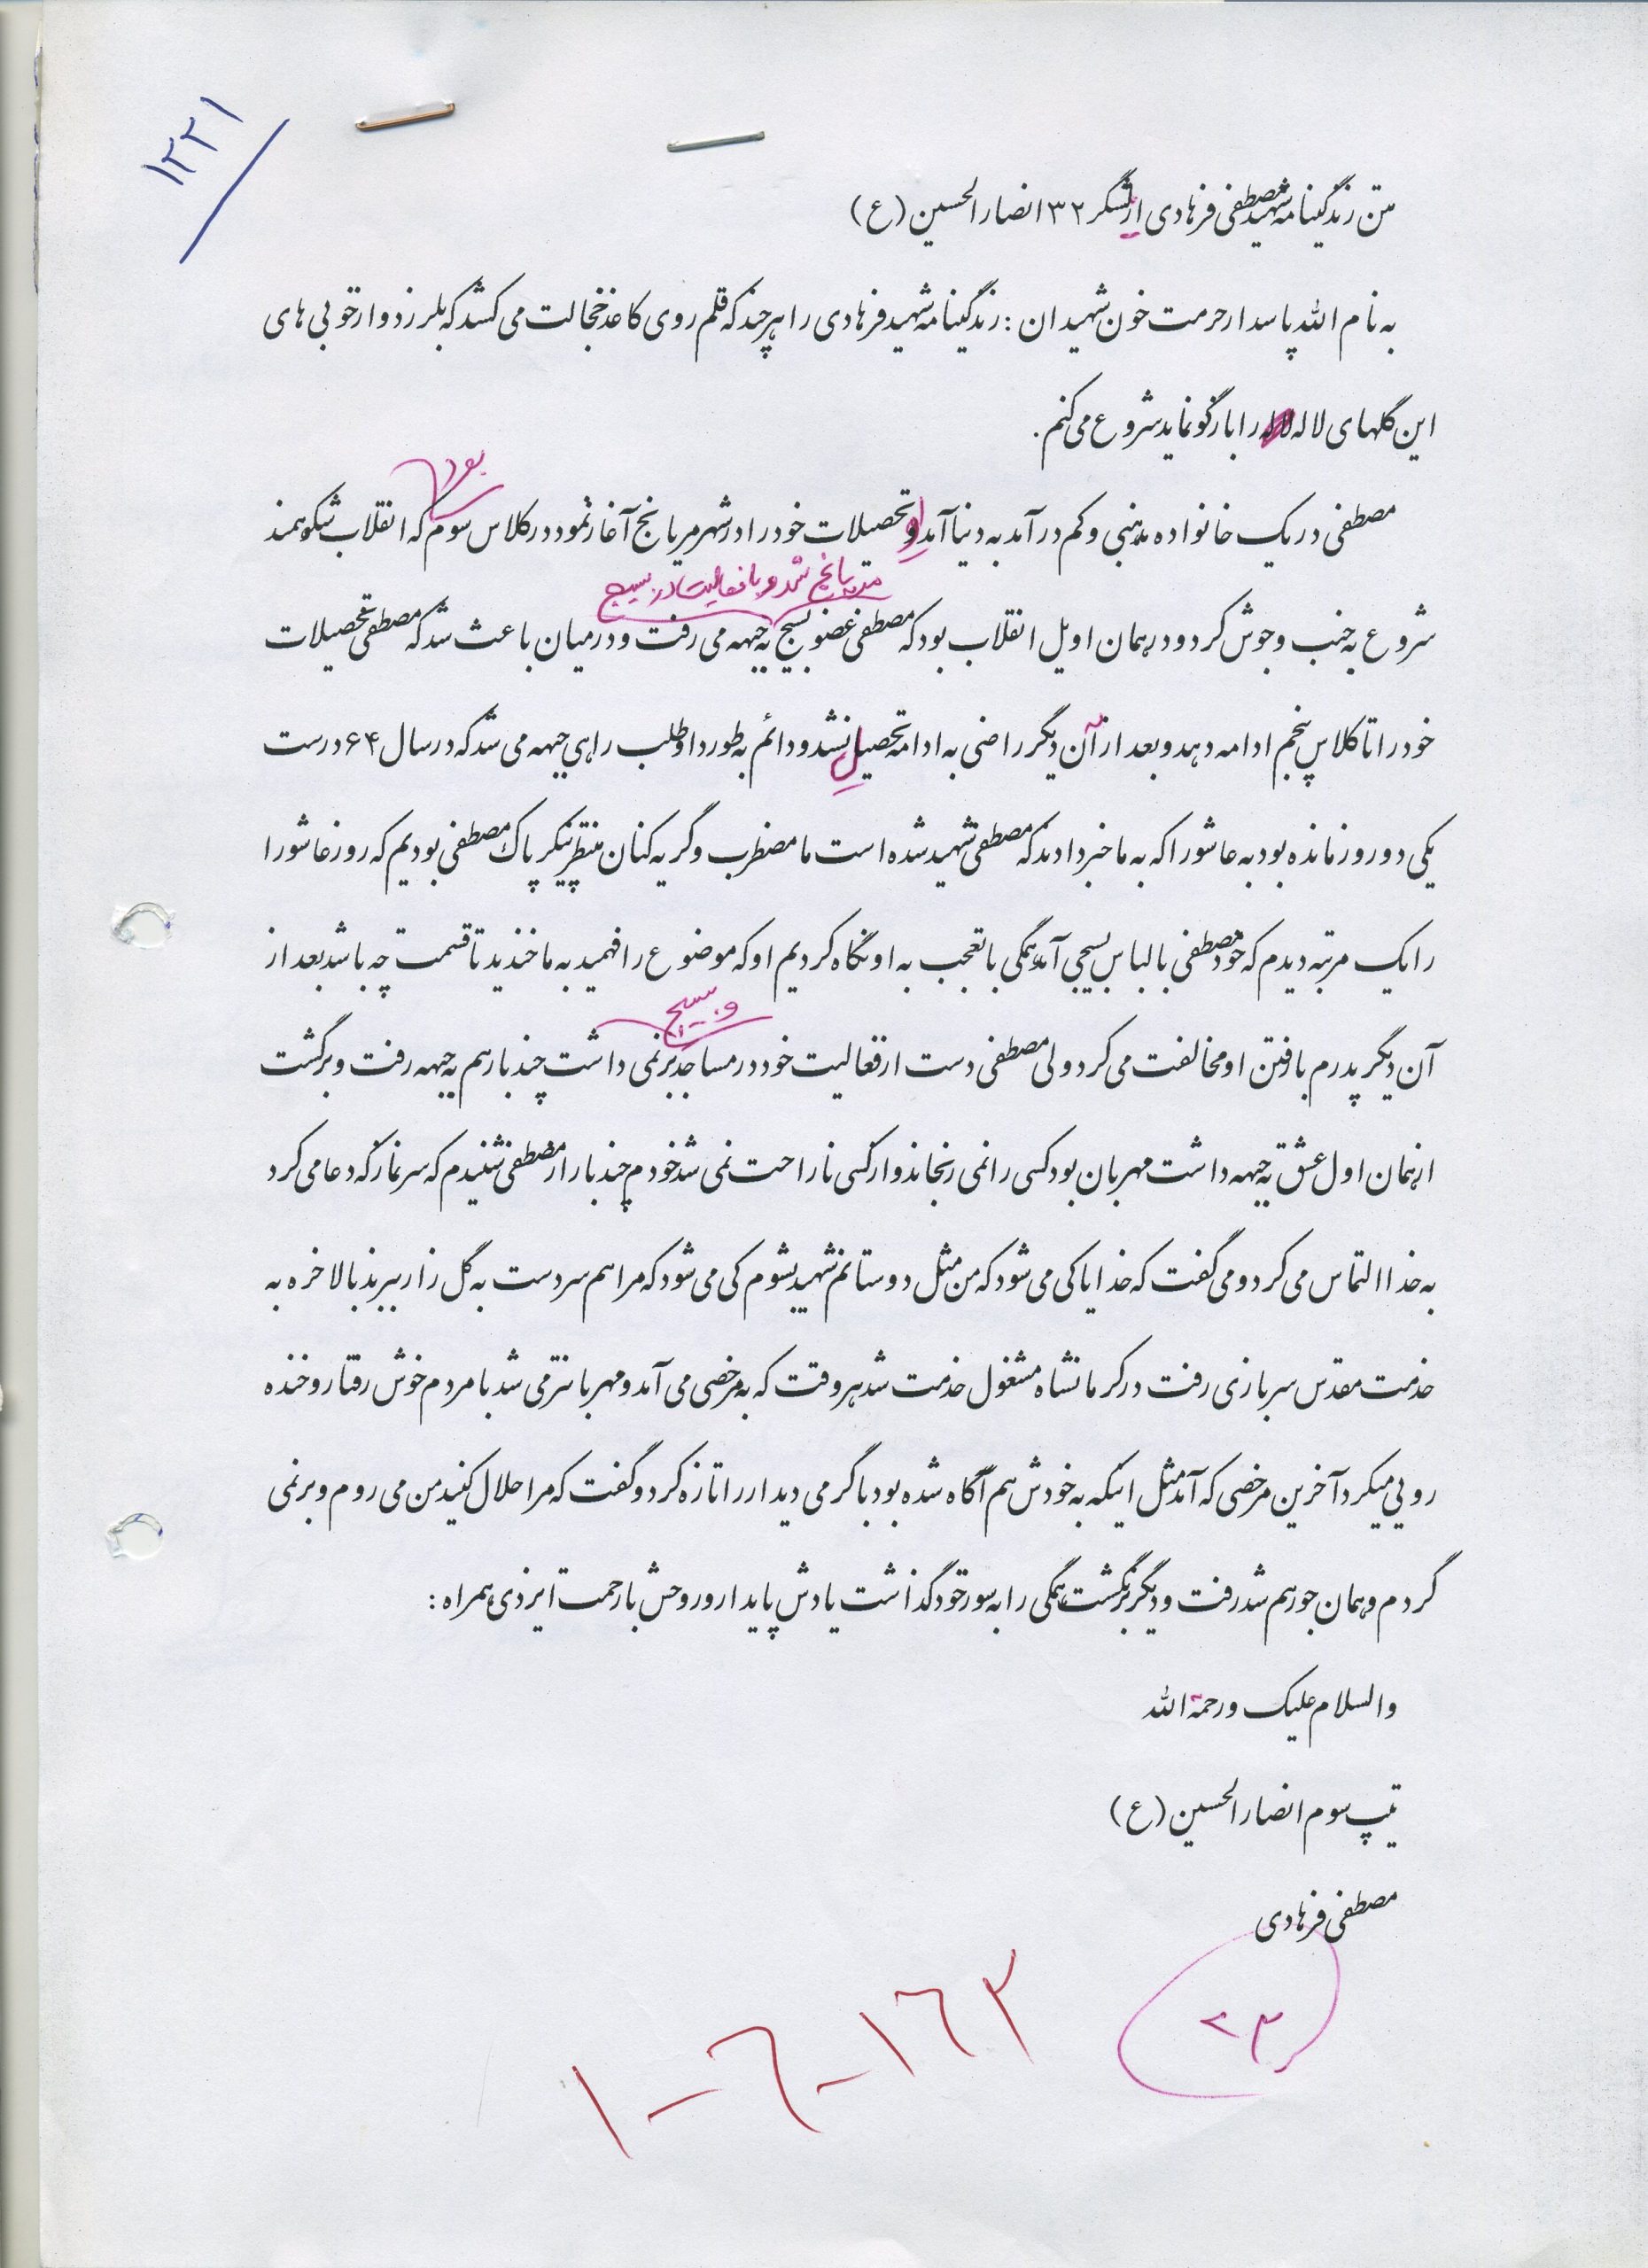 ۱۲۲۱
متن زندگینامه شهید مصطفی فرهادی از لشگر ۳۲ انصار الحسین (ع)
به نام الله پاسدار حرمت خون شهیدان : زندگینامه شهید فرهادی را هر چند که قلم روی کاغذ خجالت می کشد که بلرزد و از خوبی های
این گلهای لاله را بازگو نماید شروع می کنم.
بود
مصطفی در یک خانواده مذهبی و کم درآمد به دنیا آمد او تحصیلات خود را در شهر مریانج آغاز نمود در کلاس سوم که انقلاب شکوهمند
مریانج شد و با فعالیت در بسیج
شروع به جنب و جوش کرد و در همان اویل انقلاب بود که مصطفی عضو بسیج به جبهه می رفت و در میان باعث شد که مصطفی تحصیلات
خود را تا کلاس پنجم ادامه دهد و بعد از آن دیگر راضی به ادامه تحصیل نشد و دائم به طور داوطلب راهی جبهه می شد که در سال ۶۴ درست
یکی دو روز مانده بود به عاشورا که به ما خبر دادند که مصطفی شهید شده است ما مضطرب و گریه کنان منتظر پیکر پاک مصطفی بودیم که روز عاشورا
را یک مرتبه دیدم که خود مصطفی با لباس بسیجی آمد همگی با تعجب به او نگاه کردیم او که موضوع را فهمید به ما خندید تا قسمت چه باشد بعد از
و بسیج
آن دیگر پدرم با رفتن او مخالفت می کرد ولی مصطفی دست از فعالیت خود در مساجد بر نمی داشت چند بار هم به جبهه رفت و برگشت
از همان اول عشق به جبهه داشت مهربان بود کسی را نمی رنجاند و از کسی ناراحت نمی شد خودم چند بار از مصطفی شنیدم که سر نماز که دعا می کرد
به خدا التماس می کرد و می گفت که خدایا کی می شود که من مثل دوستانم شهید بشوم کی می شود که مرا هم سر دست به گل زار ببرند بالاخره به
خدمت مقدس سربازی رفت در کرمانشاه مشغول خدمت شد هر وقت که به مرخصی می آمد و مهربانتر می شد با مردم خوش رفتار و خنده
رویی میکرد آخرین مرخصی که آمد مثل اینکه به خودش هم آگاه شده بود با گرمی دیدار را تازه کرد و گفت که مرا حلال کنید من می روم و بر نمی
گردم و همان جور هم شد رفت و دیگر برنگشت همگی را به سور خود گذاشت یادش پایدار و روحش با رحمت ایزدی همراه :
والسلام علیک و رحمة الله
تیپ سوم انصار الحسین (ع)
مصطفی فرهادی
۲۳
۱-۶-۱۶۳